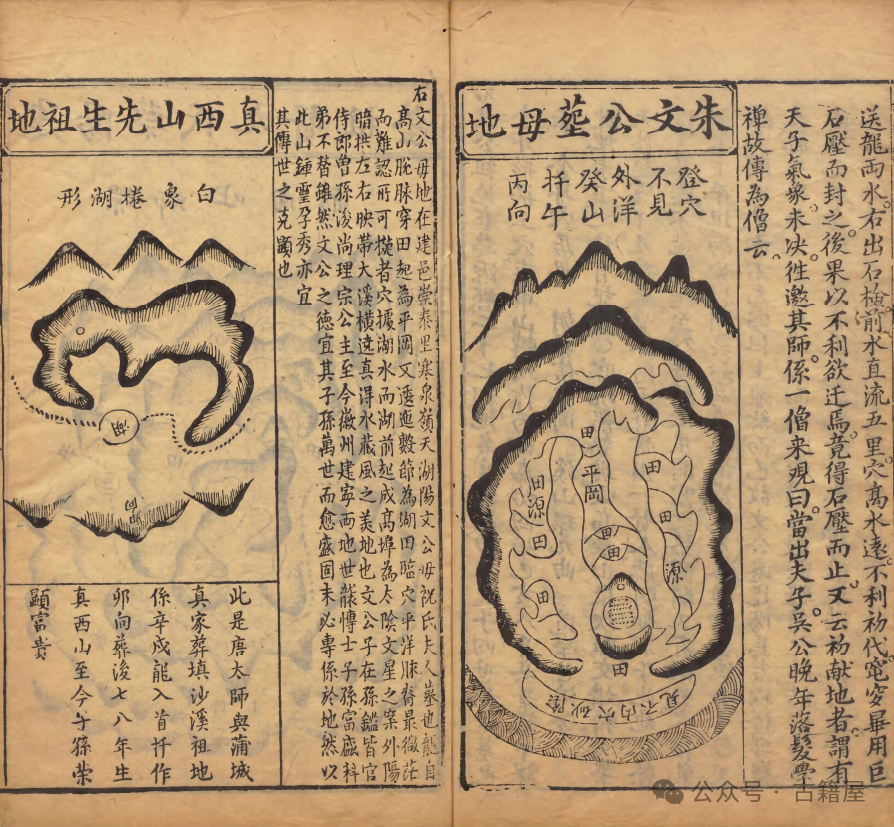 送龍両水右出石橫前水直流五里穴髙水遠不利初代窀穸畢用巨
石壓而封之後果以不利欲迁焉竟得石壓而止又云初献地者謂有
天子氣象未决徃邀其師係一僧来观曰當出夫子吳公晚年落髮學
禅故傳為僧云
朱文公塟母地
登穴
不見
外洋
癸山
扦午
丙向
田
平岡
田
田
田
田
源
田
田
田
源
田
田
砂穴内不見
右文公母地在建邑崇泰里寒泉嶺天湖陽文公母祝氏夫人墓也龍自
髙山脫脉穿田起為平岡又逶迤數節為湖田臨穴平洋脉脊最微茫
而難認所可㨿者穴據湖水而湖前起成髙埠為太陰文星之案外陽
暗拱左右映帶大溪橫遶真得水藏風之美地也文公子在孫鑑皆官
侍郎曾孫浚尚理宗公主至今徽州建寕兩地世襲博士子孫富盛科
弟不替雖然文公之德宜其子孫萬世而愈盛固未必專係於地然以
此山鍾靈孕秀亦宜
其傳世之克顯也
真西山先生祖地
白象捲湖形
湖
卯向
此是唐太師與蒲城
真家葬填沙溪祖地
係辛戍龍入首扦作
卯向葬後七八年生
真西山至今子孫榮
顯富貴
公众号·古籍屋